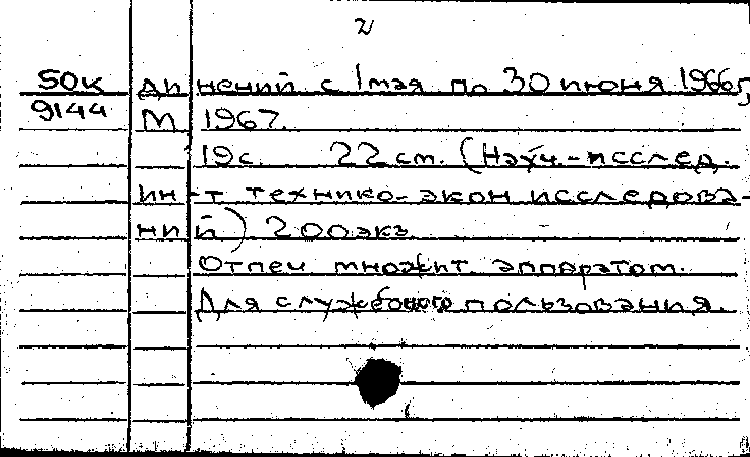 2
50к динений с 1 мая по 30 июня 1966г
9144 М 1967.
19с. 22 cm. (Науч.-исслед.
ин-т технико-экон исследова-
ний) 200 экз
Отпеч множит. аппаратом.
Для служебного пользования.